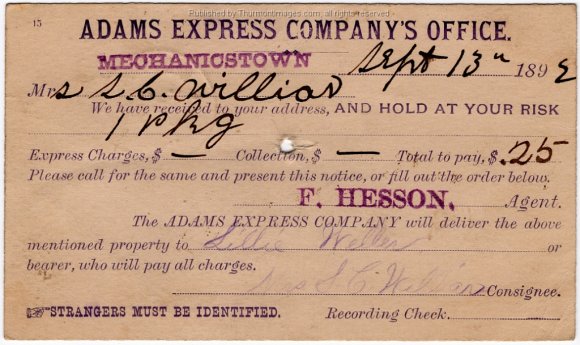 Published by Thurmontimages.com, all rights reserved
15
ADAMS EXPRESS COMPANY'S OFFICE.
MECHANICSTOWN Sept 13" 1892
Mrs S. C. Williar
We have received to your address, AND HOLD AT YOUR RISK
1 Pkg
Express Charges, $ — Collection, $ — Total to pay, $ .25
Please call for the same and present this notice, or fill out the order below.
F. HESSON, Agent.
The ADAMS EXPRESS COMPANY will deliver the above
mentioned property to Lillie Weller or
bearer, who will pay all charges.
Mrs S C Williar Consignee.
☞STRANGERS MUST BE IDENTIFIED. Recording Check